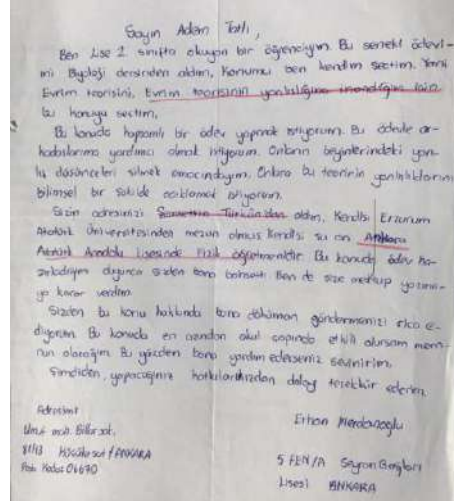 Sayın Adem Tatlı,
Ben Lise 2. sınıfta okuyan bir öğrenciyim. Bu seneki ödevi-
mi Biyoloji dersinden aldım, Konumu ben kendim seçtim. Yani
Evrim teorisini, Evrim teorisinin yanlışlığına inandığım için
bu konuyu seçtim.
Bu konuda kapsamlı bir ödev yapmak istiyorum. Bu ödevle ar-
kadaşlarıma yardımcı olmak istiyorum. Onların beyinlerindeki yan-
lış düşünceleri silmek amacındayım. Onlara bu teorinin yanlışlıklarını
bilimsel bir şekilde açıklamak istiyorum.
Sizin adresinizi Türkün'den aldım, Kendisi Erzurum
Atatürk Üniversitesinden mezun olmuş Kendisi şu an Ankara
Atatürk Anadolu Lisesinde Fizik öğretmenidir. Bu konuda ödev ha-
zırladığım duyunca sizden bana bahsetti. Ben de size mektup yazma-
ya karar verdim.
Sizden bu konu hakkında bana döküman göndermenizi rica e-
diyorum. Bu konuda en azından okul çapında etkili olursam mem-
nun olacağım. Bu yüzden bana yardım ederseniz sevinirim.
Şimdiden, yapacağınız katkılarınızdan dolayı teşekkür ederim.
Adresim:
Umut mah.
81/13 / ANKARA
Posta Kodu: 06670
Erhan
5 FEN/A Seyran Bağları
Lisesi ANKARA